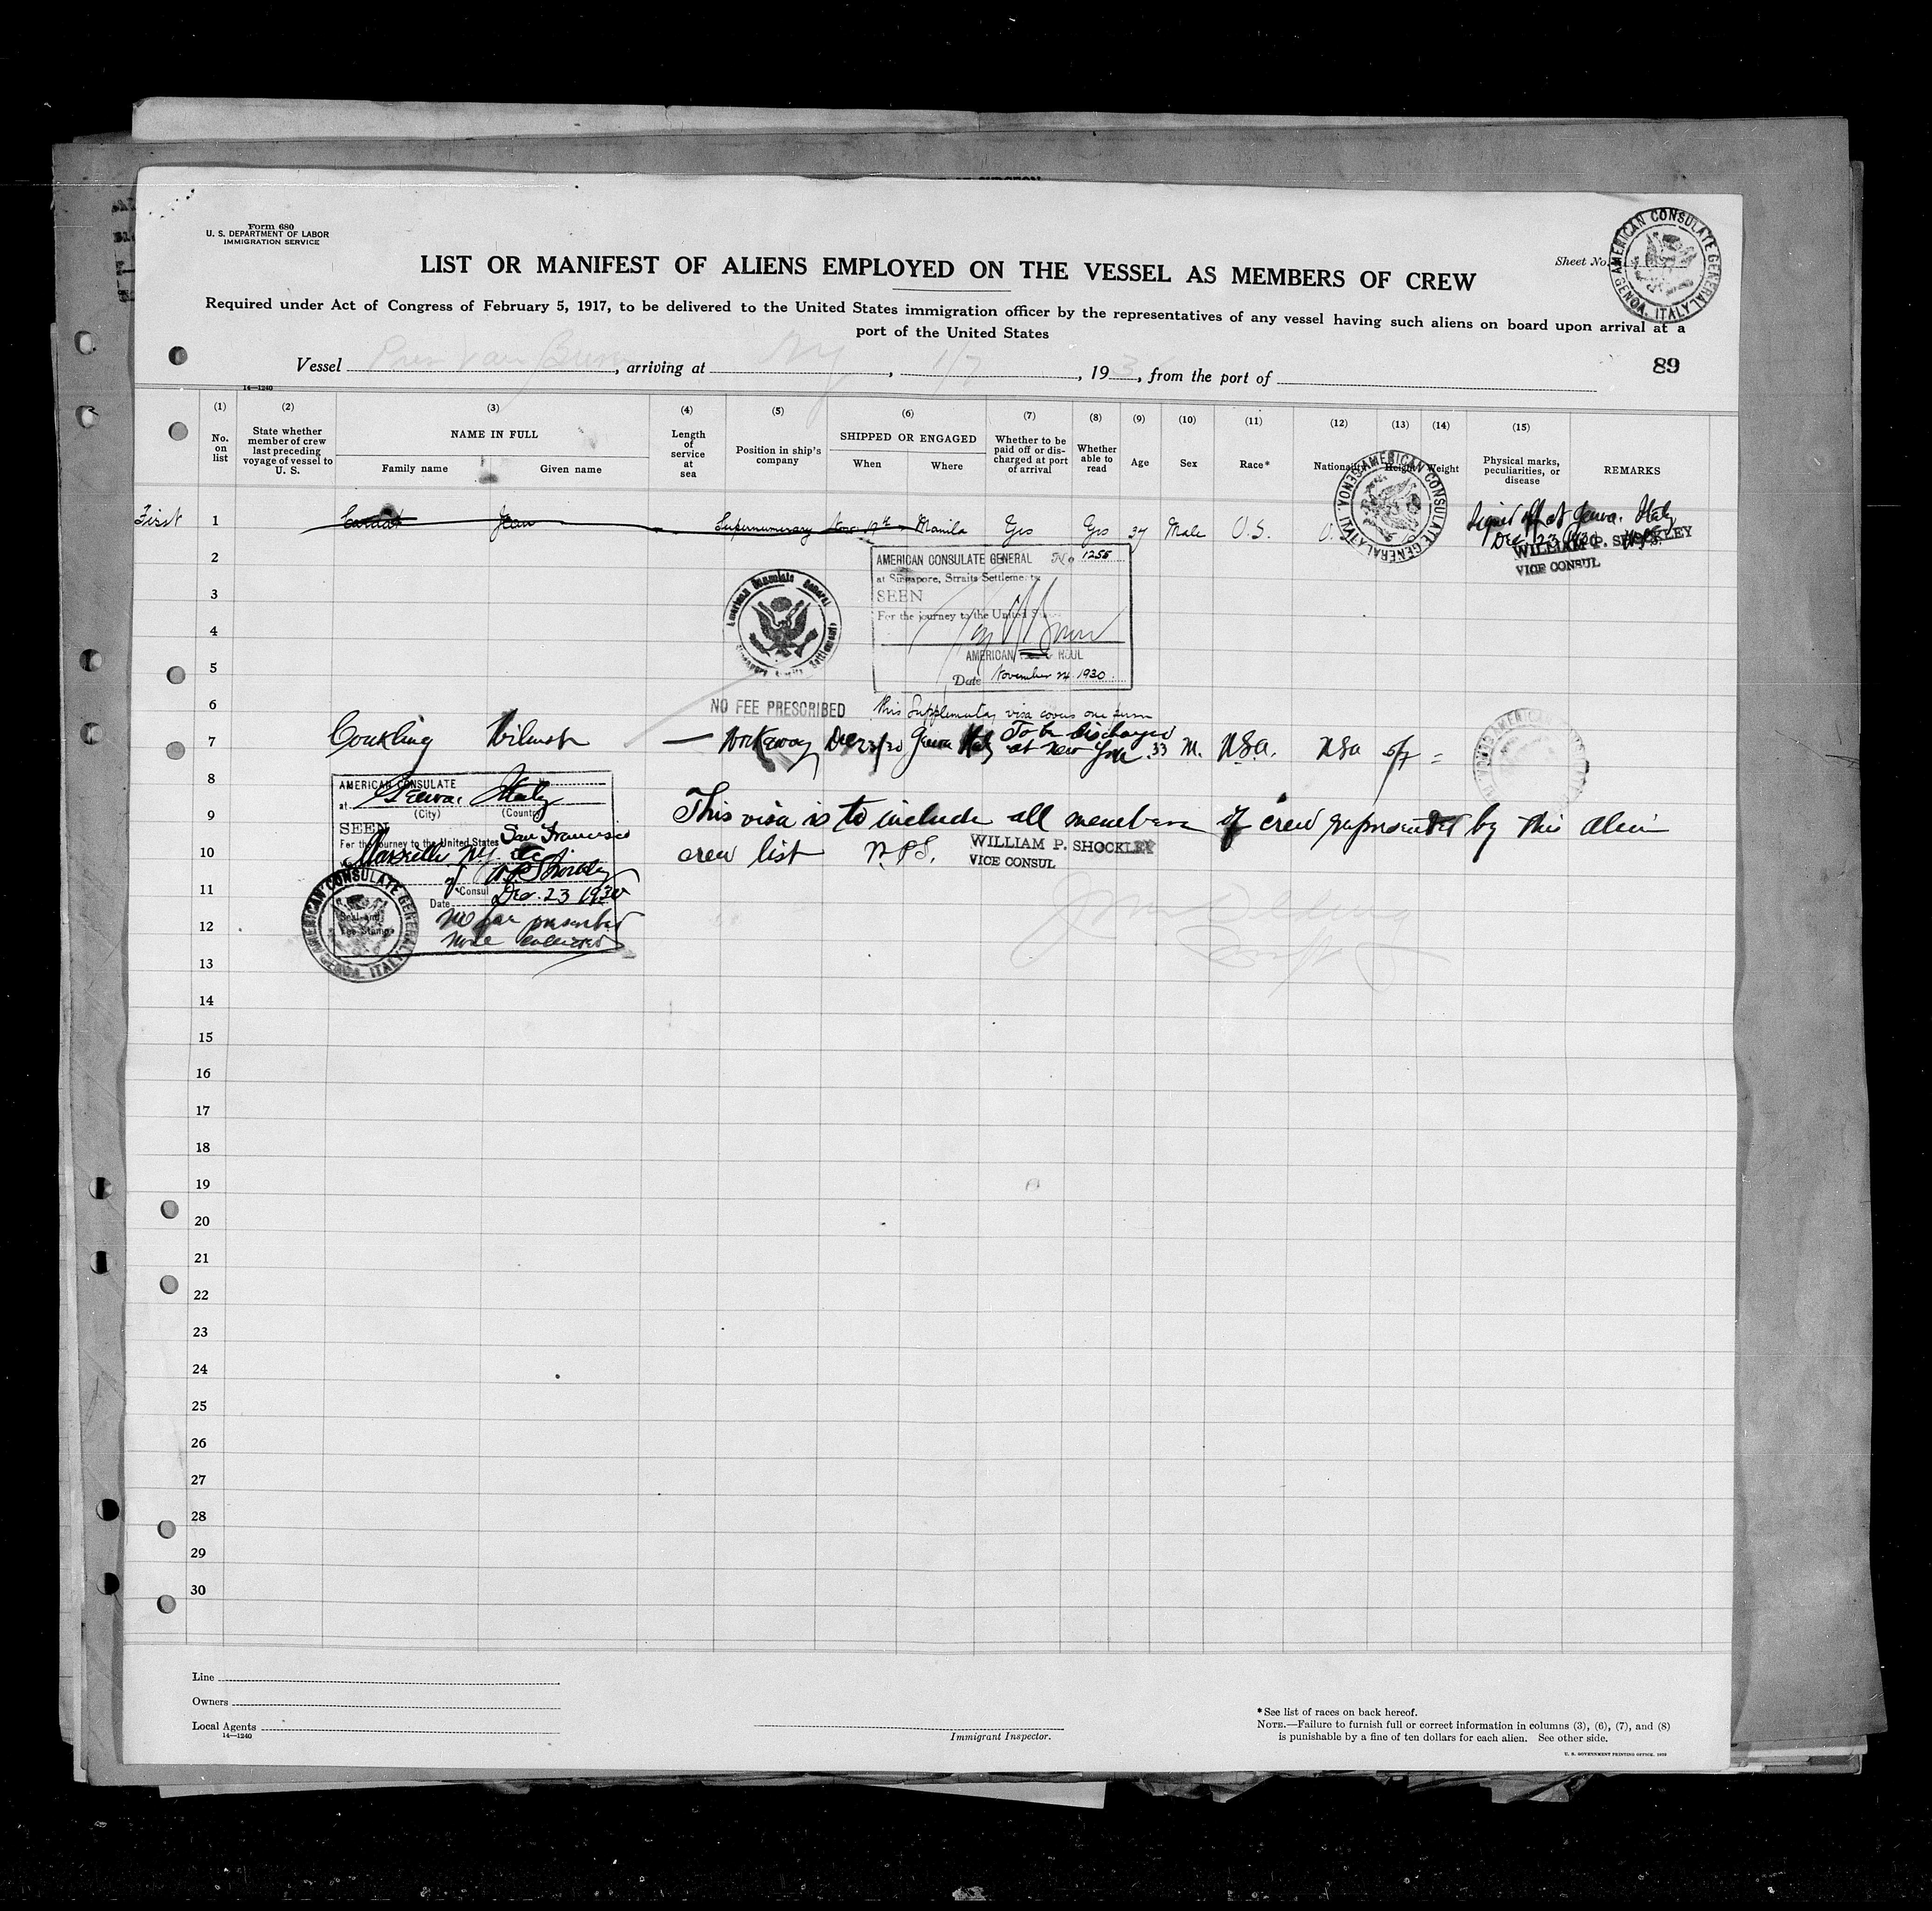 Form 680
U. S. DEPARTMENT OF LABOR
IMMIGRATION SERVICE
Sheet No.
AMERICAN CONSULATE GENERAL GENOA, ITALY
LIST OR MANIFEST OF ALIENS EMPLOYED ON THE VESSEL AS MEMBERS OF CREW
Required under Act of Congress of February 5, 1917, to be delivered to the United States immigration officer by the representatives of any vessel having such aliens on board upon arrival at a
port of the United States
89
Vessel Pres Van Buren, arriving at NY, 1/7, 193, from the port of
14—1240
(1) (2) (3) (4) (5) (6) (7) (8) (9) (10) (11) (12) (13) (14) (15)
No. on list
State whether member of crew last preceding voyage of vessel to U. S.
NAME IN FULL
Family name Given name
Length of service at sea
Position in ship's company
SHIPPED OR ENGAGED
When Where
Whether to be paid off or discharged at port of arrival
Whether able to read
Age
Sex
Race*
Nationality
Height
Weight
Physical marks, peculiarities, or disease
REMARKS
AMERICAN CONSULATE GENERAL GENOA, ITALY
First 1 Jean Supernumerary Nov 19th Manila Yes Yes 37 Male U.S. U.
Signed off at Genoa, Italy
Dec. 23 1930 WPS.
WILLIAM P. SHOCKLEY
VICE CONSUL
2
3
4
5
6
American Consulate General Singapore, Straits Settlements
AMERICAN CONSULATE GENERAL No 1255
at Singapore, Straits Settlements
SEEN
For the journey to the United States
AMERICAN CONSUL
Date November 24 1930
NO FEE PRESCRIBED
This Supplementary visa covers one person
7 Conkling — Workaway Dec 23/30 Genoa Italy To be discharged at New York 33 M. USA. USA 5/7 =
8
AMERICAN CONSULATE
at Genoa, Italy
(City) (Country)
SEEN
For the journey to the United States San Francisco
Marseille NY
WPShockley
Consul
Date Dec. 23 1930
No fee prescribed
none collected
Seal and
Fee Stamp
AMERICAN CONSULATE GENERAL GENOA, ITALY
9 This visa is to include all members of crew represented by this alien
10 crew list W.P.S. WILLIAM P. SHOCKLEY
VICE CONSUL
11
12
13
14
15
16
17
18
19
20
21
22
23
24
25
26
27
28
29
30
Line
Owners
Local Agents
14—1240
Immigrant Inspector.
* See list of races on back hereof.
NOTE.—Failure to furnish full or correct information in columns (3), (6), (7), and (8)
is punishable by a fine of ten dollars for each alien. See other side.